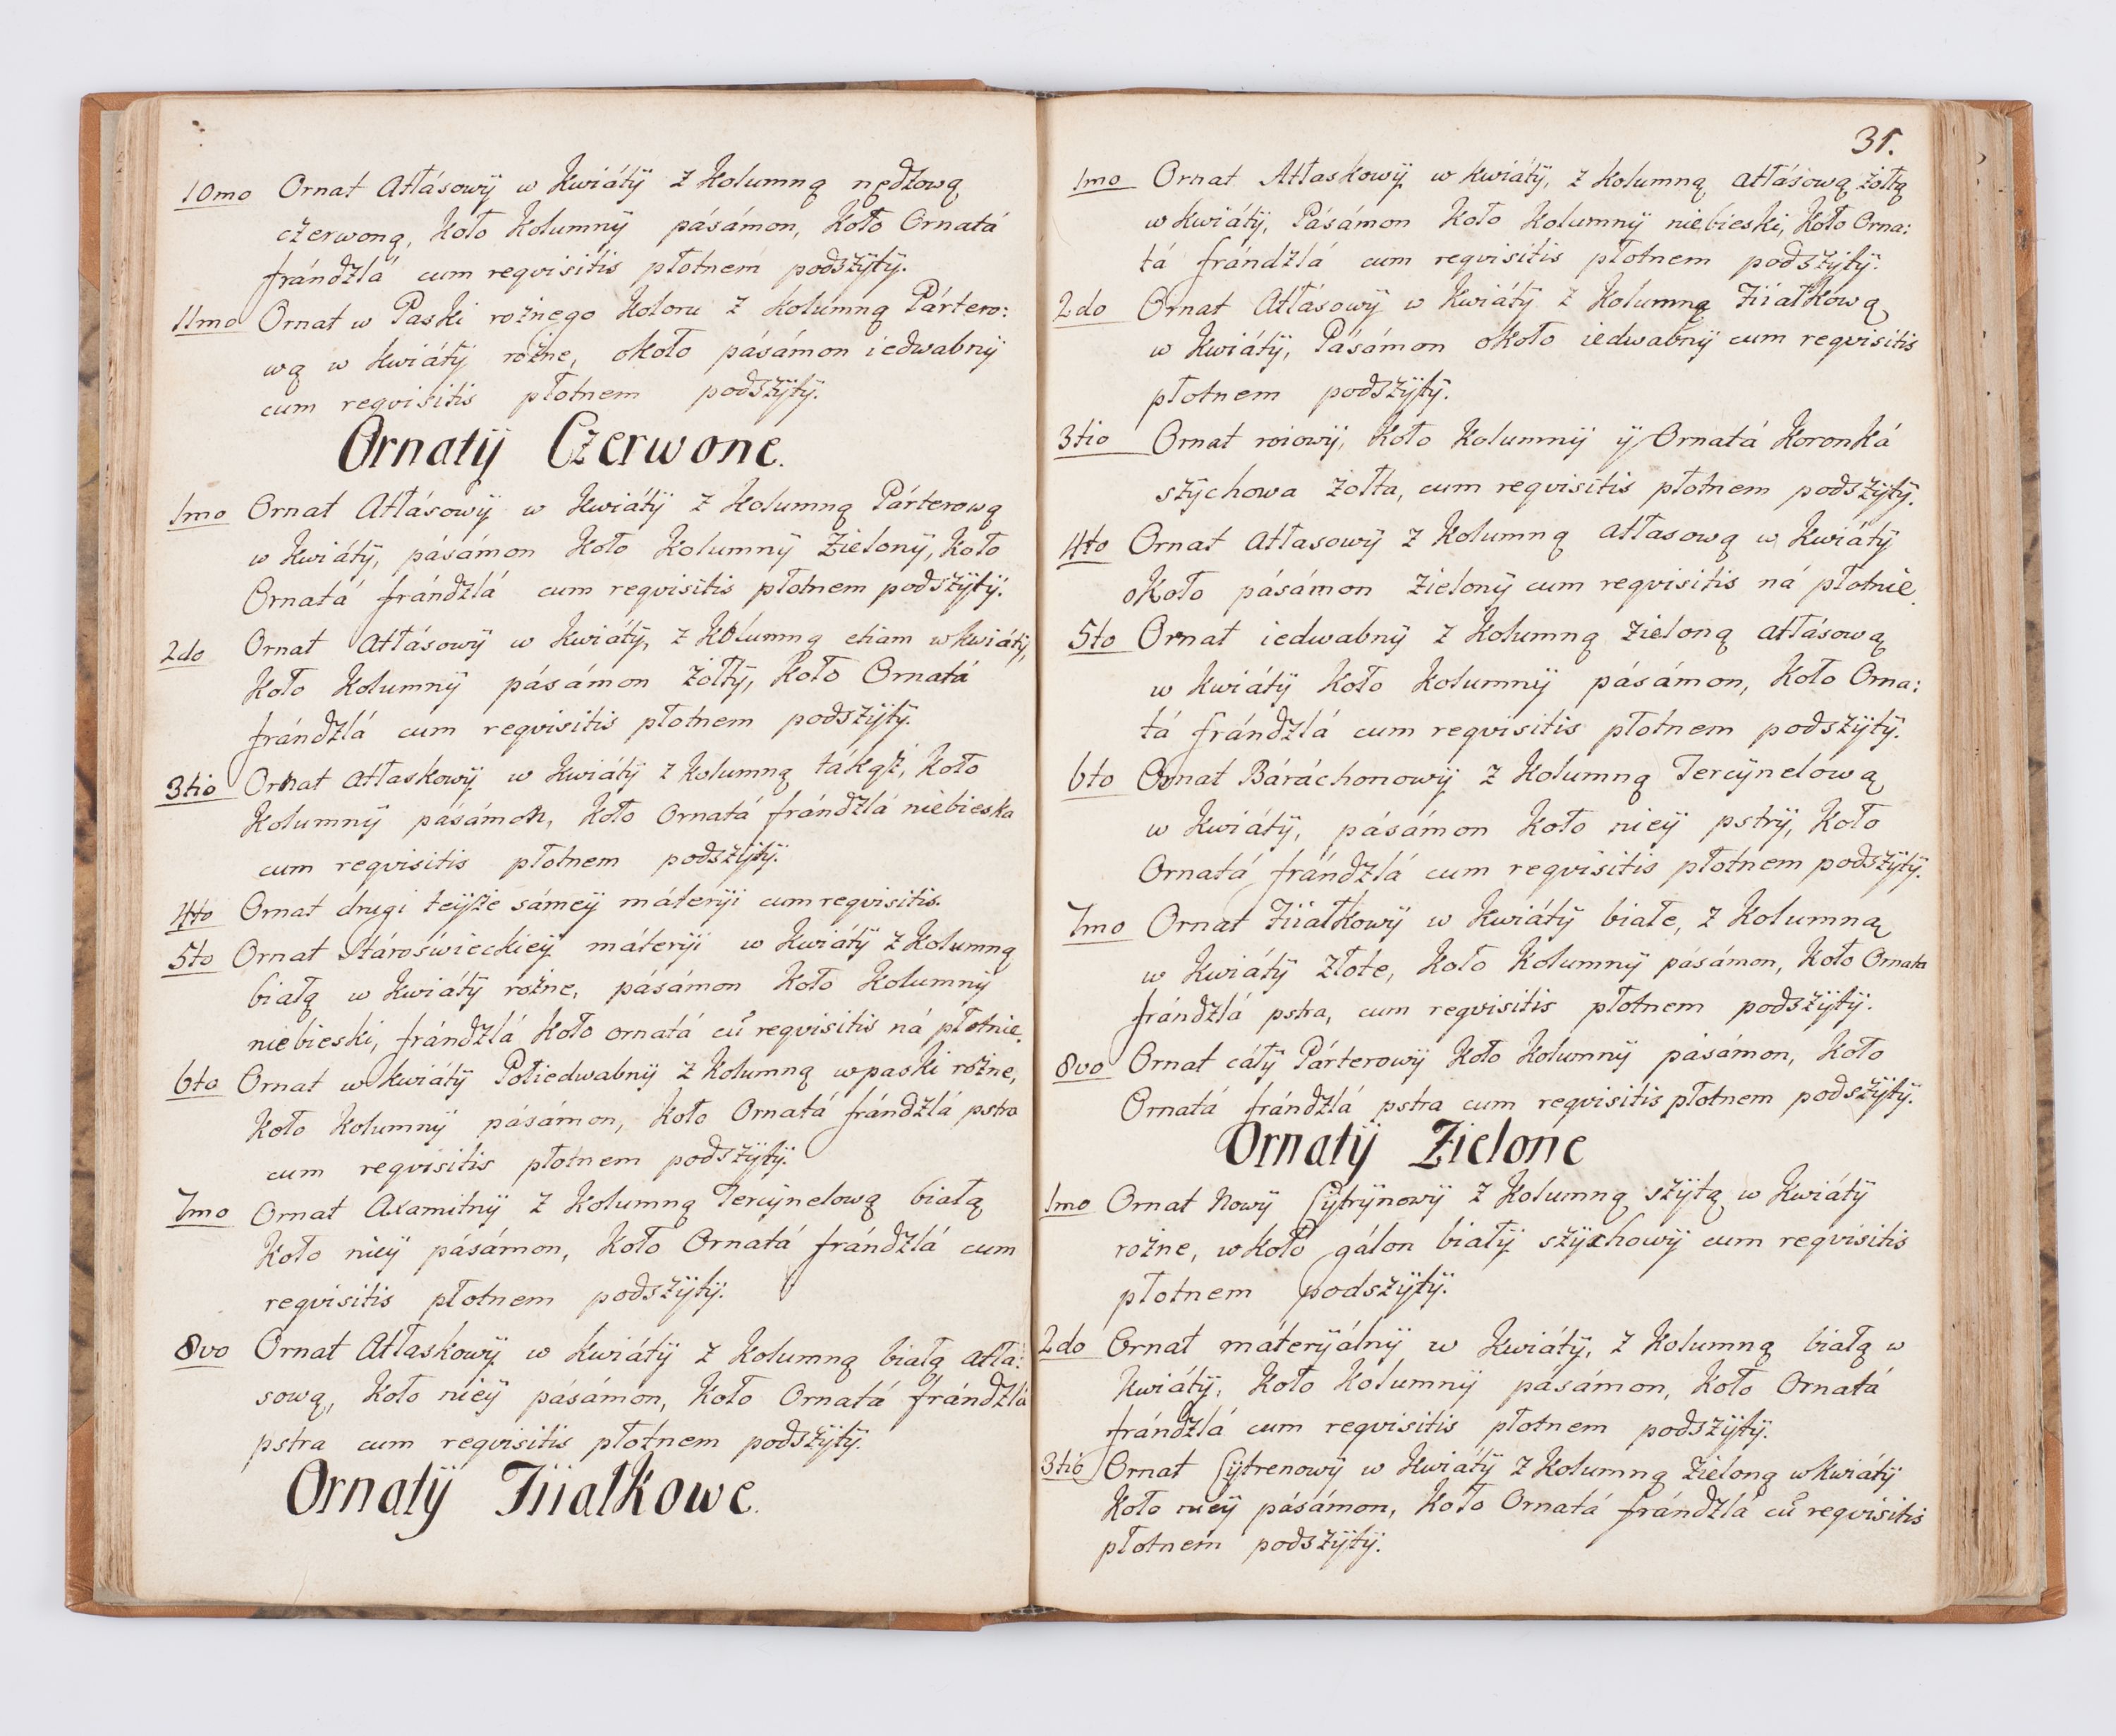 10mo Ornat Atłásowÿ w Kwiátÿ z Kolumną nędzową
czerwoną, Koło Kolumnÿ pásámon, Koło Ornatá
frándzlá cum reqvisitis płotnem podszÿtÿ.
11mo Ornat w Paski rożnego Koloru z Kolumną Pártero:
wą w Kwiátÿ rożne, około pásámon iedwabnÿ
cum reqvisitis płotnem podszÿtÿ.
Ornatÿ Czerwone.
1mo Ornat Atłásowÿ w Kwiátÿ z Kolumną Párterową
w Kwiátÿ, pásámon Koło Kolumnÿ Zielonÿ, Koło
Ornatá frándzlá cum reqvisitis płotnem podszÿtÿ.
2do Ornat Atłásowÿ w Kwiátÿ, z Kolumną etiam w Kwiátÿ,
Koło Kolumnÿ pásámon żółtÿ, Koło Ornatá
frándzlá cum reqvisitis płotnem podszÿtÿ.
3tio Ornat Atłaskowÿ w Kwiátÿ z Kolumną tákąż, Koło
Kolumnÿ pásámon, Koło Ornatá frándzlá niebieska
cum reqvisitis płotnem podszÿtÿ.
4to Ornat drugi teÿże sámeÿ máterÿi cum reqvisitis.
5to Ornat Stároświeckieÿ máterÿi w Kwiátÿ z Kolumną
białą w Kwiátÿ rożne, pásámon Koło Kolumnÿ
niebieski, frándzlá Koło ornatá cū reqvisitis ná płotnie.
6to Ornat w Kwiátÿ Połiedwabnÿ z Kolumną w paski rożne,
Koło Kolumnÿ pásámon, Koło Ornatá frándzlá pstra
cum reqvisitis płotnem podszÿtÿ.
7mo Ornat Axamitnÿ z Kolumną Tercÿnelową białą
Koło nieÿ pásámon, Koło Ornatá frándzlá cum
reqvisitis płotnem podszÿtÿ.
8vo Ornat Atłaskowÿ w Kwiátÿ z Kolumną białą atła:
sową, Koło nieÿ pásámon, Koło Ornatá frándzlá
pstra cum reqvisitis płotnem podszÿtÿ.
Ornatÿ Fiiałkowe.
31.
1mo Ornat Atłaskowÿ w Kwiátÿ, z Kolumną atłásową żółtą
w Kwiátÿ, Pásámon Koło Kolumnÿ niebieski, Koło Orna:
tá frándzlá cum reqvisitis płotnem podszÿtÿ.
2do Ornat Atłásowÿ w Kwiátÿ z Kolumną Fiiałkową
w Kwiátÿ, Pásámon około iedwabnÿ cum reqvisitis
płotnem podszÿtÿ.
3tio Ornat roiowÿ, Koło Kolumnÿ ÿ Ornatá Koronká
szÿchowa żółta, cum reqvisitis płotnem podszÿtÿ.
4to Ornat atłasowÿ z Kolumną atłasową w Kwiátÿ
około pásámon zielonÿ cum reqvisitis ná płotnie.
5to Ornat iedwabnÿ z Kolumną zieloną atłásową
w Kwiátÿ Koło Kolumnÿ pásámon, Koło Orna:
tá frándzlá cum reqvisitis płotnem podszÿtÿ.
6to Ornat Báráchonowÿ z Kolumną Tercÿnelową
w Kwiátÿ, pásámon Koło nieÿ pstrÿ, Koło
Ornatá frándzlá cum reqvisitis płotnem podszÿtÿ.
7mo Ornat Fiiałkowÿ w Kwiátÿ białe, z Kolumną
w Kwiátÿ złote, Koło Kolumnÿ pásámon, Koło Ornata
frándzlá pstra, cum reqvisitis płotnem podszÿtÿ.
8vo Ornat cáłÿ Párterowÿ Koło Kolumnÿ pásámon, Koło
Ornatá frándzlá pstra cum reqvisitis płotnem podszÿtÿ.
Ornatÿ Zielone
1mo Ornat Nowÿ Cÿtrÿnowÿ z Kolumną szÿtą w Kwiátÿ
rożne, w koło gálon białÿ szÿchowÿ cum reqvisitis
płotnem podszÿtÿ.
2do Ornat máterÿálnÿ w Kwiátÿ, z Kolumną białą w
Kwiátÿ, Koło Kolumnÿ pásámon, Koło Ornatá
frándzlá cum reqvisitis płotnem podszÿtÿ.
3tio Ornat Cÿtrenowÿ w Kwiátÿ z Kolumną zieloną w Kwiátÿ
Koło nieÿ pásámon, Koło Ornatá frándzlá cū reqvisitis
płotnem podszÿtÿ.